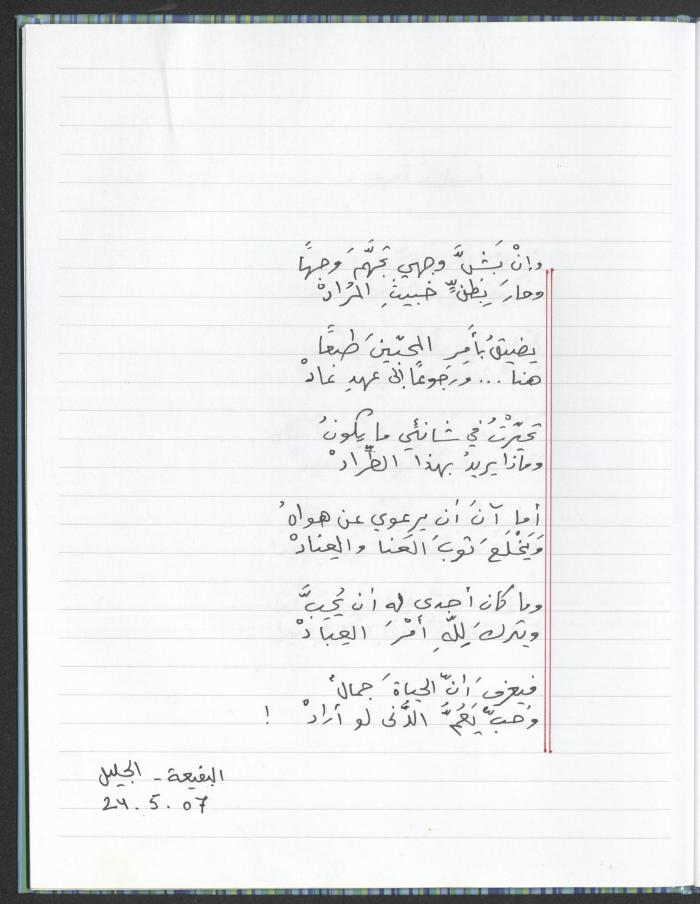 وإنْ بَشَّ وجهي تجهَّمَ وجهًا
وحارَ بِظنٍّ خبيثِ المُرادْ
يضيقُ بأمرِ المحبّينَ طبعًا
هنا... ورجوعًا إلى عهدِ عادْ
تحيّرْتُ في شانئي ما يكونُ
وماذا يريدُ بهذا الطِّرادْ
أما آنَ أن يرعوي عن هواهُ
وَيَخْلَعَ ثوبَ العَنا والعِنادْ
وما كان أجدى له أن يُحِبَّ
ويتركَ لِلّهِ أمْرَ العِبادْ
فيعرفَ أنّ الحياةَ جمالٌ
وحُبٌّ يَعُمُّ الدُّنى لو أرادْ !
البقيعة - الجليل
24.5.07